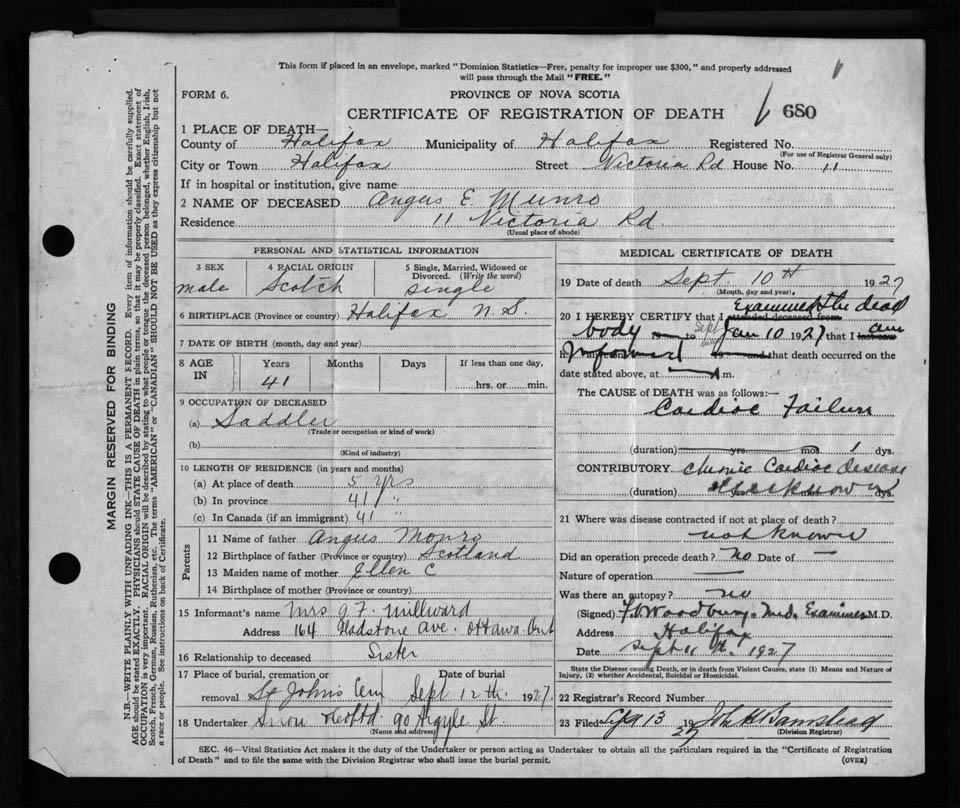 This form if placed in an envelope, marked "Dominion Statistics—Free, penalty for improper use $300," and properly addressed
will pass through the Mail "FREE."
FORM 6.
PROVINCE OF NOVA SCOTIA
CERTIFICATE OF REGISTRATION OF DEATH
680
1 PLACE OF DEATH—
County of Halifax Municipality of Halifax Registered No.
(For use of Registrar General only)
City or Town Halifax Street Victoria Rd House No. 11
If in hospital or institution, give name
2 NAME OF DECEASED Angus E Munro
Residence 11 Victoria Rd.
(Usual place of abode)
PERSONAL AND STATISTICAL INFORMATION
3 SEX male
4 RACIAL ORIGIN Scotch
5 Single, Married, Widowed or Divorced. (Write the word) single
6 BIRTHPLACE (Province or country) Halifax N.S.
7 DATE OF BIRTH (month, day and year)
8 AGE IN Years 41 Months Days If less than one day, hrs. or min.
9 OCCUPATION OF DECEASED
(a) Saddler
(Trade or occupation or kind of work)
(b)
(Kind of industry)
10 LENGTH OF RESIDENCE (in years and months)
(a) At place of death 5 yrs
(b) In province 41 "
(c) In Canada (if an immigrant) 41 "
Parents
11 Name of father Angus Monro
12 Birthplace of father (Province or country) Scotland
13 Maiden name of mother Ellen C
14 Birthplace of mother (Province or country)
15 Informant's name Mrs J. F. Millward
Address 164 Gladstone Ave. Ottawa Ont
16 Relationship to deceased Sister
17 Place of burial, cremation or removal St Johns Cem
Date of burial Sept 12th. 1927.
18 Undertaker Snow & Co Ltd. 90 Argyle St.
(Name and address)
MEDICAL CERTIFICATE OF DEATH
19 Date of death Sept. 10th 1927
(Month, day and year)
20 I HEREBY CERTIFY that I attended deceased from Examined the dead
body to Sept 10 1927 that I last saw am
h informed and that death occurred on the
date stated above, at m.
The CAUSE of DEATH was as follows:—
Cardiac Failure
(duration) yrs. mos. 1 dys.
CONTRIBUTORY Chronic Cardiac disease
(duration) yrs. unknown dys.
21 Where was disease contracted if not at place of death?
not known
Did an operation precede death? No Date of —
Nature of operation —
Was there an autopsy? no
(Signed) Woodbury. Med. Examiner M.D.
Address Halifax
Date Sept 11th. 1927
State the Disease causing Death, or in death from Violent Causes, state (1) Means and Nature of
Injury, (2) whether Accidental, Suicidal or Homicidal.
22 Registrar's Record Number
23 Filed Sept 13 1927
(Division Registrar)
SEC. 46—Vital Statistics Act makes it the duty of the Undertaker or person acting as Undertaker to obtain all the particulars required in the "Certificate of Registration
of Death" and to file the same with the Division Registrar who shall issue the burial permit.
(OVER)
MARGIN RESERVED FOR BINDING
N.B.—WRITE PLAINLY WITH UNFADING INK—THIS IS A PERMANENT RECORD. Every item of information should be carefully supplied.
AGE should be stated EXACTLY. PHYSICIANS should STATE CAUSE OF DEATH in plain terms, so that it may be properly classified. Exact statement of
OCCUPATION is very important. RACIAL ORIGIN will be described by stating to what people or tongue the deceased person belonged, whether English, Irish,
Scotch, French, German, Russian, Ruthenian, etc. The terms "AMERICAN" or "CANADIAN" SHOULD NOT BE USED as they express citizenship but not
a race or people. See instructions on back of Certificate.